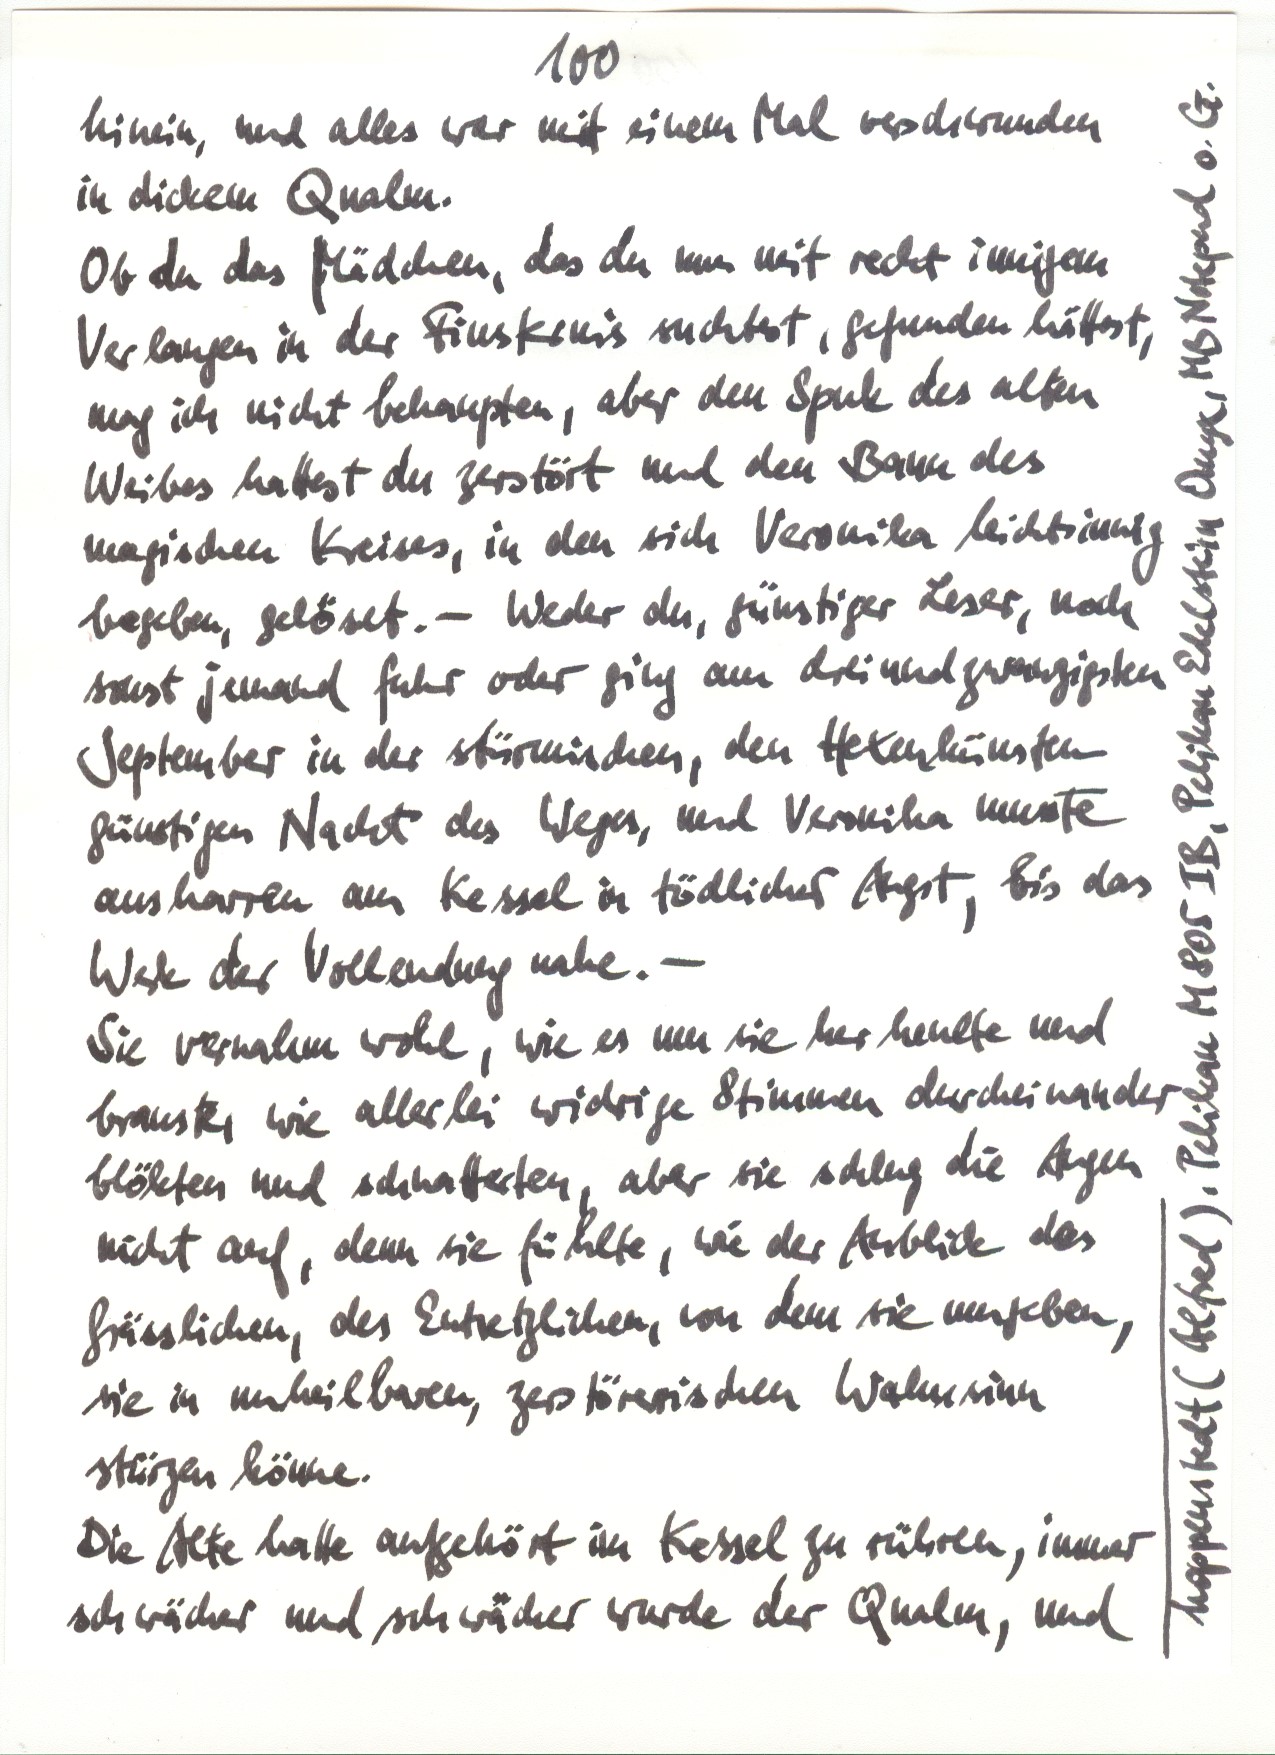 100
hinein, und alles war mit einem Mal verschwunden
in dickem Qualm.
Ob du das Mädchen, das du nun mit recht innigem
Verlangen in der Finsternis suchtest, gefunden hättest,
mag ich nicht behaupten, aber den Spuk des alten
Weibes hattest du zerstört und den Bann des
magischen Kreises, in den sich Veronika leichtsinnig
begeben, gelöset. — Weder du, günstiger Leser, noch
sonst jemand fuhr oder ging am dreiundzwanzigsten
September in der stürmischen, den Hexenkünsten
günstigen Nacht des Weges, und Veronika musste
ausharren am Kessel in tödlicher Angst, bis das
Werk der Vollendung nahe. —
Sie vernahm wohl, wie es um sie her heulte und
brauste, wie allerlei widrige Stimmen durcheinander
blökten und schnatterten, aber sie schlug die Augen
nicht auf, denn sie fühlte, wie der Anblick des
Grässlichen, des Entsetzlichen, von dem sie umgeben,
sie in unheilbaren, zerstörerischen Wahnsinn
stürzen könne.
Die Alte hatte aufgehört im Kessel zu rühren, immer
schwächer und schwächer wurde der Qualm, und
hoppenstedt (Alfred). Pelikan M805 IB, Pelikan Edelstein Onyx, MB Notepad o. G.